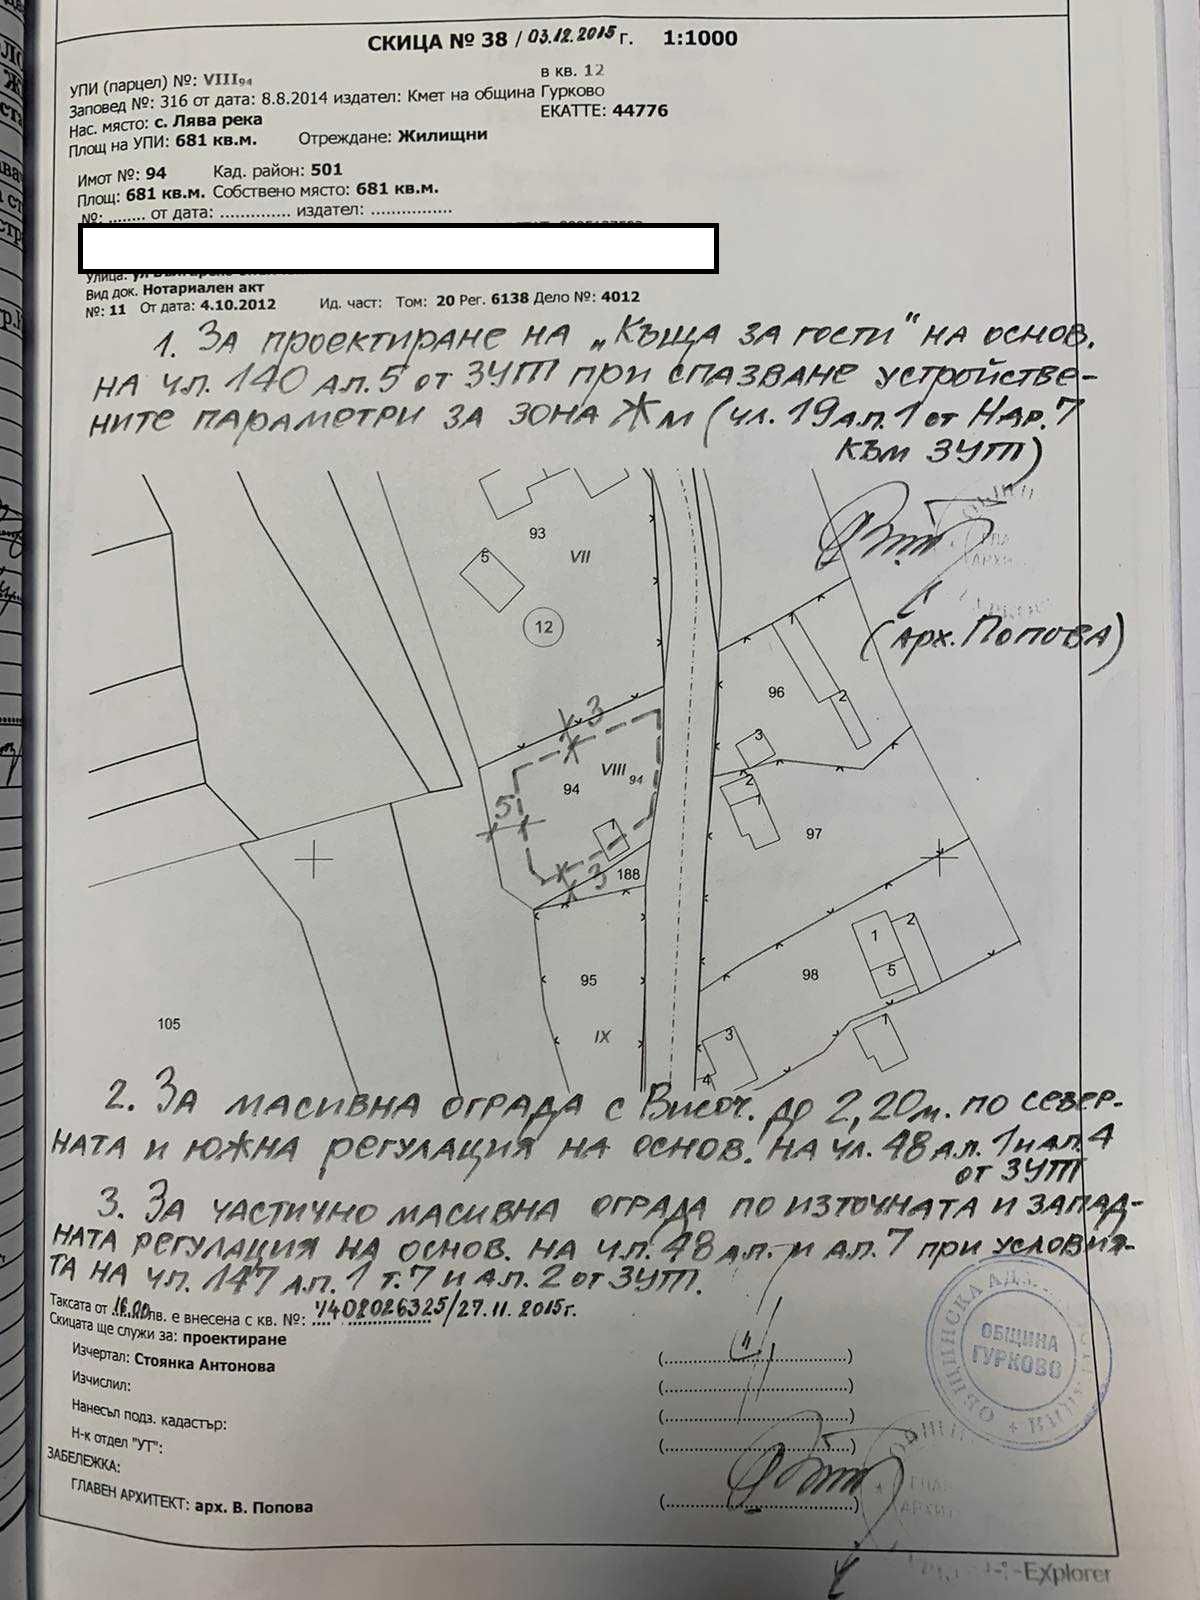 СКИЦА № 38 / 03.12.2015 г. 1:1000
УПИ (парцел) №: VIII94
в кв. 12
Заповед №: 316 от дата: 8.8.2014 издател: Кмет на община Гурково
Нас. място: с. Лява река
ЕКАТТЕ: 44776
Площ на УПИ: 681 кв.м. Отреждане: Жилищни
Имот №: 94 Кад. район: 501
Площ: 681 кв.м. Собствено място: 681 кв.м.
№: ........ от дата: .............. издател: ................
Улица:
Вид док. Нотариален акт
№: 11 От дата: 4.10.2012 Ид. част: Том: 20 Рег. 6138 Дело №: 4012
1. За проектиране на „Къща за гости" на основ.
на чл. 140 ал.5 от ЗУТ при спазване устройстве-
ните параметри за зона Жм (чл. 19 ал.1 от Нар.7
към ЗУТ)
93
VII
5
12
(арх. Попова)
96
2
3
3
VIII 94
94
5
2
1
97
1
3
188
1
2
5
98
95
105
IX
3
1
4
2. За масивна ограда с височ. до 2,20м. по север-
ната и южна регулация на основ. на чл. 48 ал. 1 и ал.4
от ЗУТ
3. За частично масивна ограда по източната и запад-
ната регулация на основ. на чл. 48 ал. и ал. 7 при условия-
та на чл. 147 ал. 1 т.7 и ал. 2 от ЗУТ.
Таксата от 16.00 лв. е внесена с кв. №: 7402026325/27.11.2015г.
Скицата ще служи за: проектиране
Изчертал: Стоянка Антонова
(..............................)
Изчислил:
(..............................)
Нанесъл подз. кадастър:
(..............................)
Н-к отдел "УТ":
(..............................)
ЗАБЕЛЕЖКА:
ГЛАВЕН АРХИТЕКТ: арх. В. Попова
(..............................)
ОБЩИНА
ГУРКОВО
Explorer